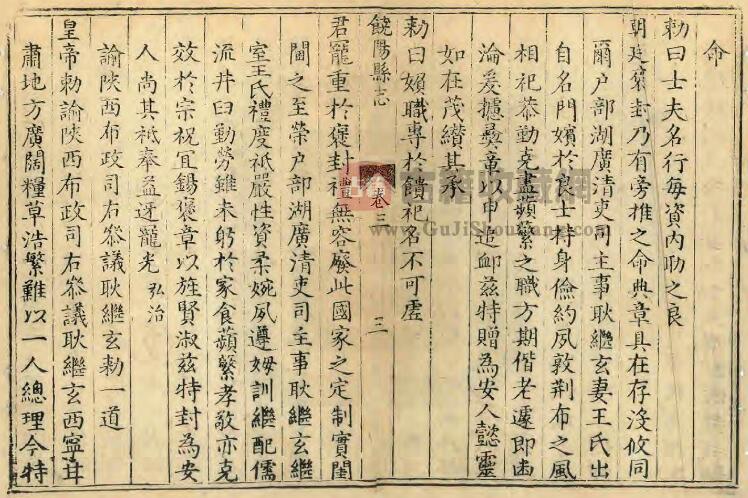 命
勅曰士夫名行每資內助之良
朝廷褒封乃有旁推之命典章具在存沒攸同
爾户部湖廣清吏司主事耿繼玄妻王氏出
自名門嬪於良士持身儉約夙敦荆布之風
相祀恭勤克盡蘋蘩之職方期偕老遽即幽
淪爰據彝章以申追卹兹特贈為安人懿靈
如在茂纘其承
勅曰嬪職專於饋祀名不可虛
饒陽縣志
卷三
三
君寵重於褒封禮無容廢此國家之定制實閨
閫之至榮户部湖廣清吏司主事耿繼玄繼
室王氏禮度祗嚴性資柔婉夙遵姆訓繼配儒
流井臼勤勞雖未躬於家食蘋蘩孝敬亦克
效於宗祝宜錫褒章以旌賢淑兹特封為安
人尚其祗奉益迓寵光弘治
諭陝西布政司右叅議耿繼玄勅一道
皇帝勅諭陝西布政司右叅議耿繼玄西寧并
肅地方廣闊糧草浩繁難以一人總理今特
古籍收藏网
www.GuJiShouCang.com